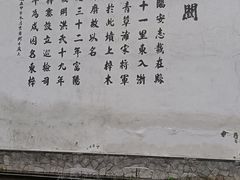 關
臨安志載在縣
十一里東入浙
青草浦宋將軍
於此墳上梓木
靡故以名
三十二年富陽
明洪武十九年
梓寨設立巡檢司
年為成因名東梓